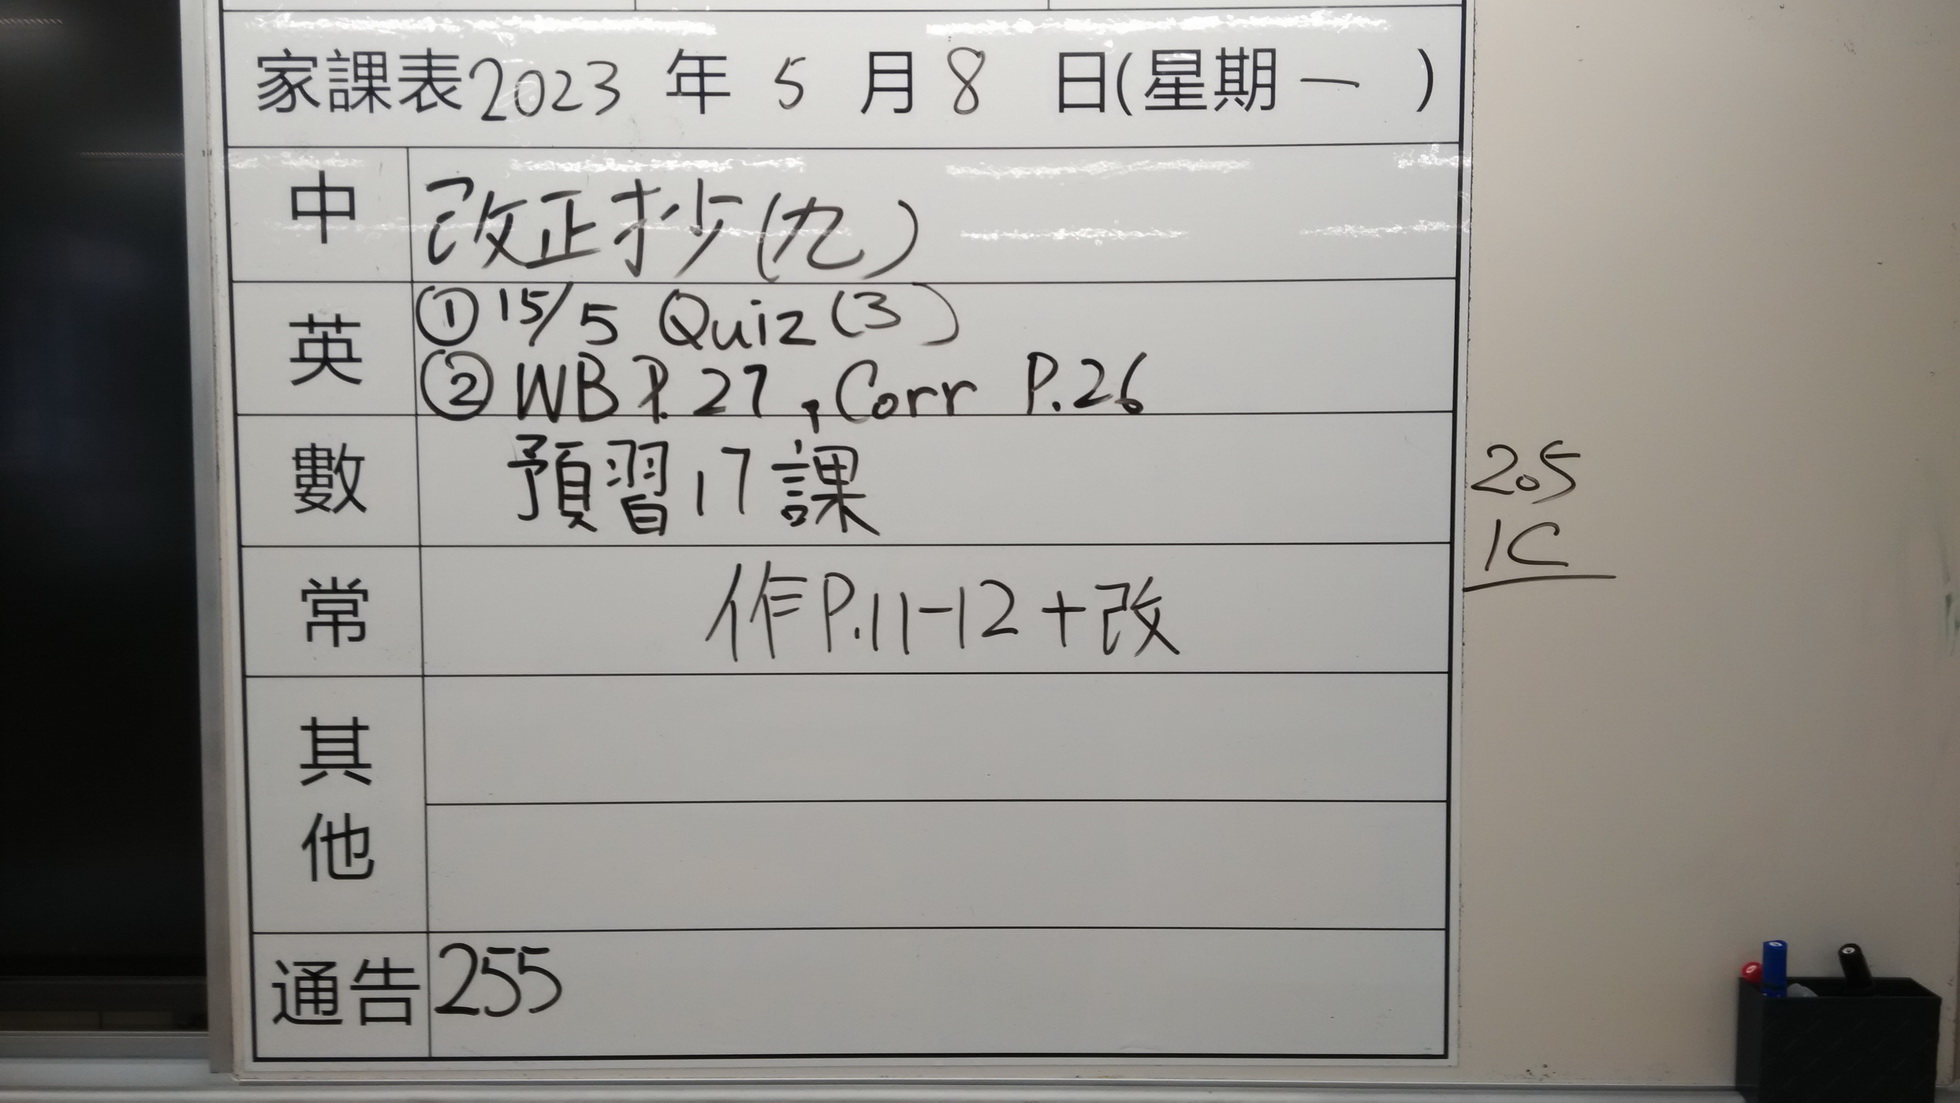 家課表2023 年 5 月 8 日(星期一 )
中 改正抄(九)
英 ①15/5 Quiz(3)
②WB P.27,Corr P.26
數 預習17課
常 作P.11-12+改
其
他
通告 255
2.5
1C